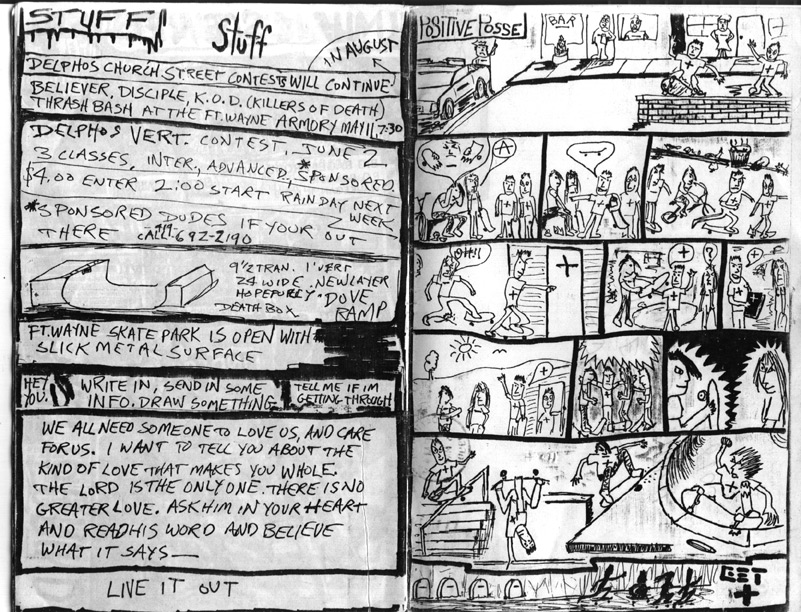 STUFF
Stuff
IN AUGUST
DELPHOS CHURCH STREET CONTESTS WILL CONTINUE
BELIEVER, DISCIPLE, K.O.D. (KILLERS OF DEATH)
THRASH BASH AT THE FT. WAYNE ARMORY MAY 11, 7:30
DELPHOS VERT. CONTEST, JUNE 2
3 CLASSES, INTER., ADVANCED, *SPONSORED
$4.00 ENTER 2:00 START RAIN DAY NEXT
WEEK
*SPONSORED DUDES IF YOUR OUT
THERE CALL 692-2190
9½ TRAN. 1' VERT
24 WIDE. NEW LAYER
HOPEFULLY
DEATH BOX
DOVE
RAMP
FT. WAYNE SKATE PARK IS OPEN WITH
SLICK METAL SURFACE
HEY
YOU.
WRITE IN, SEND IN SOME
INFO. DRAW SOMETHING
TELL ME IF IM
GETTING THROUGH
WE ALL NEED SOMEONE TO LOVE US, AND CARE
FOR US. I WANT TO TELL YOU ABOUT THE
KIND OF LOVE THAT MAKES YOU WHOLE.
THE LORD IS THE ONLY ONE. THERE IS NO
GREATER LOVE. ASK HIM IN YOUR HEART
AND READ HIS WORD AND BELIEVE
WHAT IT SAYS—
LIVE IT OUT
POSITIVE POSSE
BAR
A
OH!!
?
GET